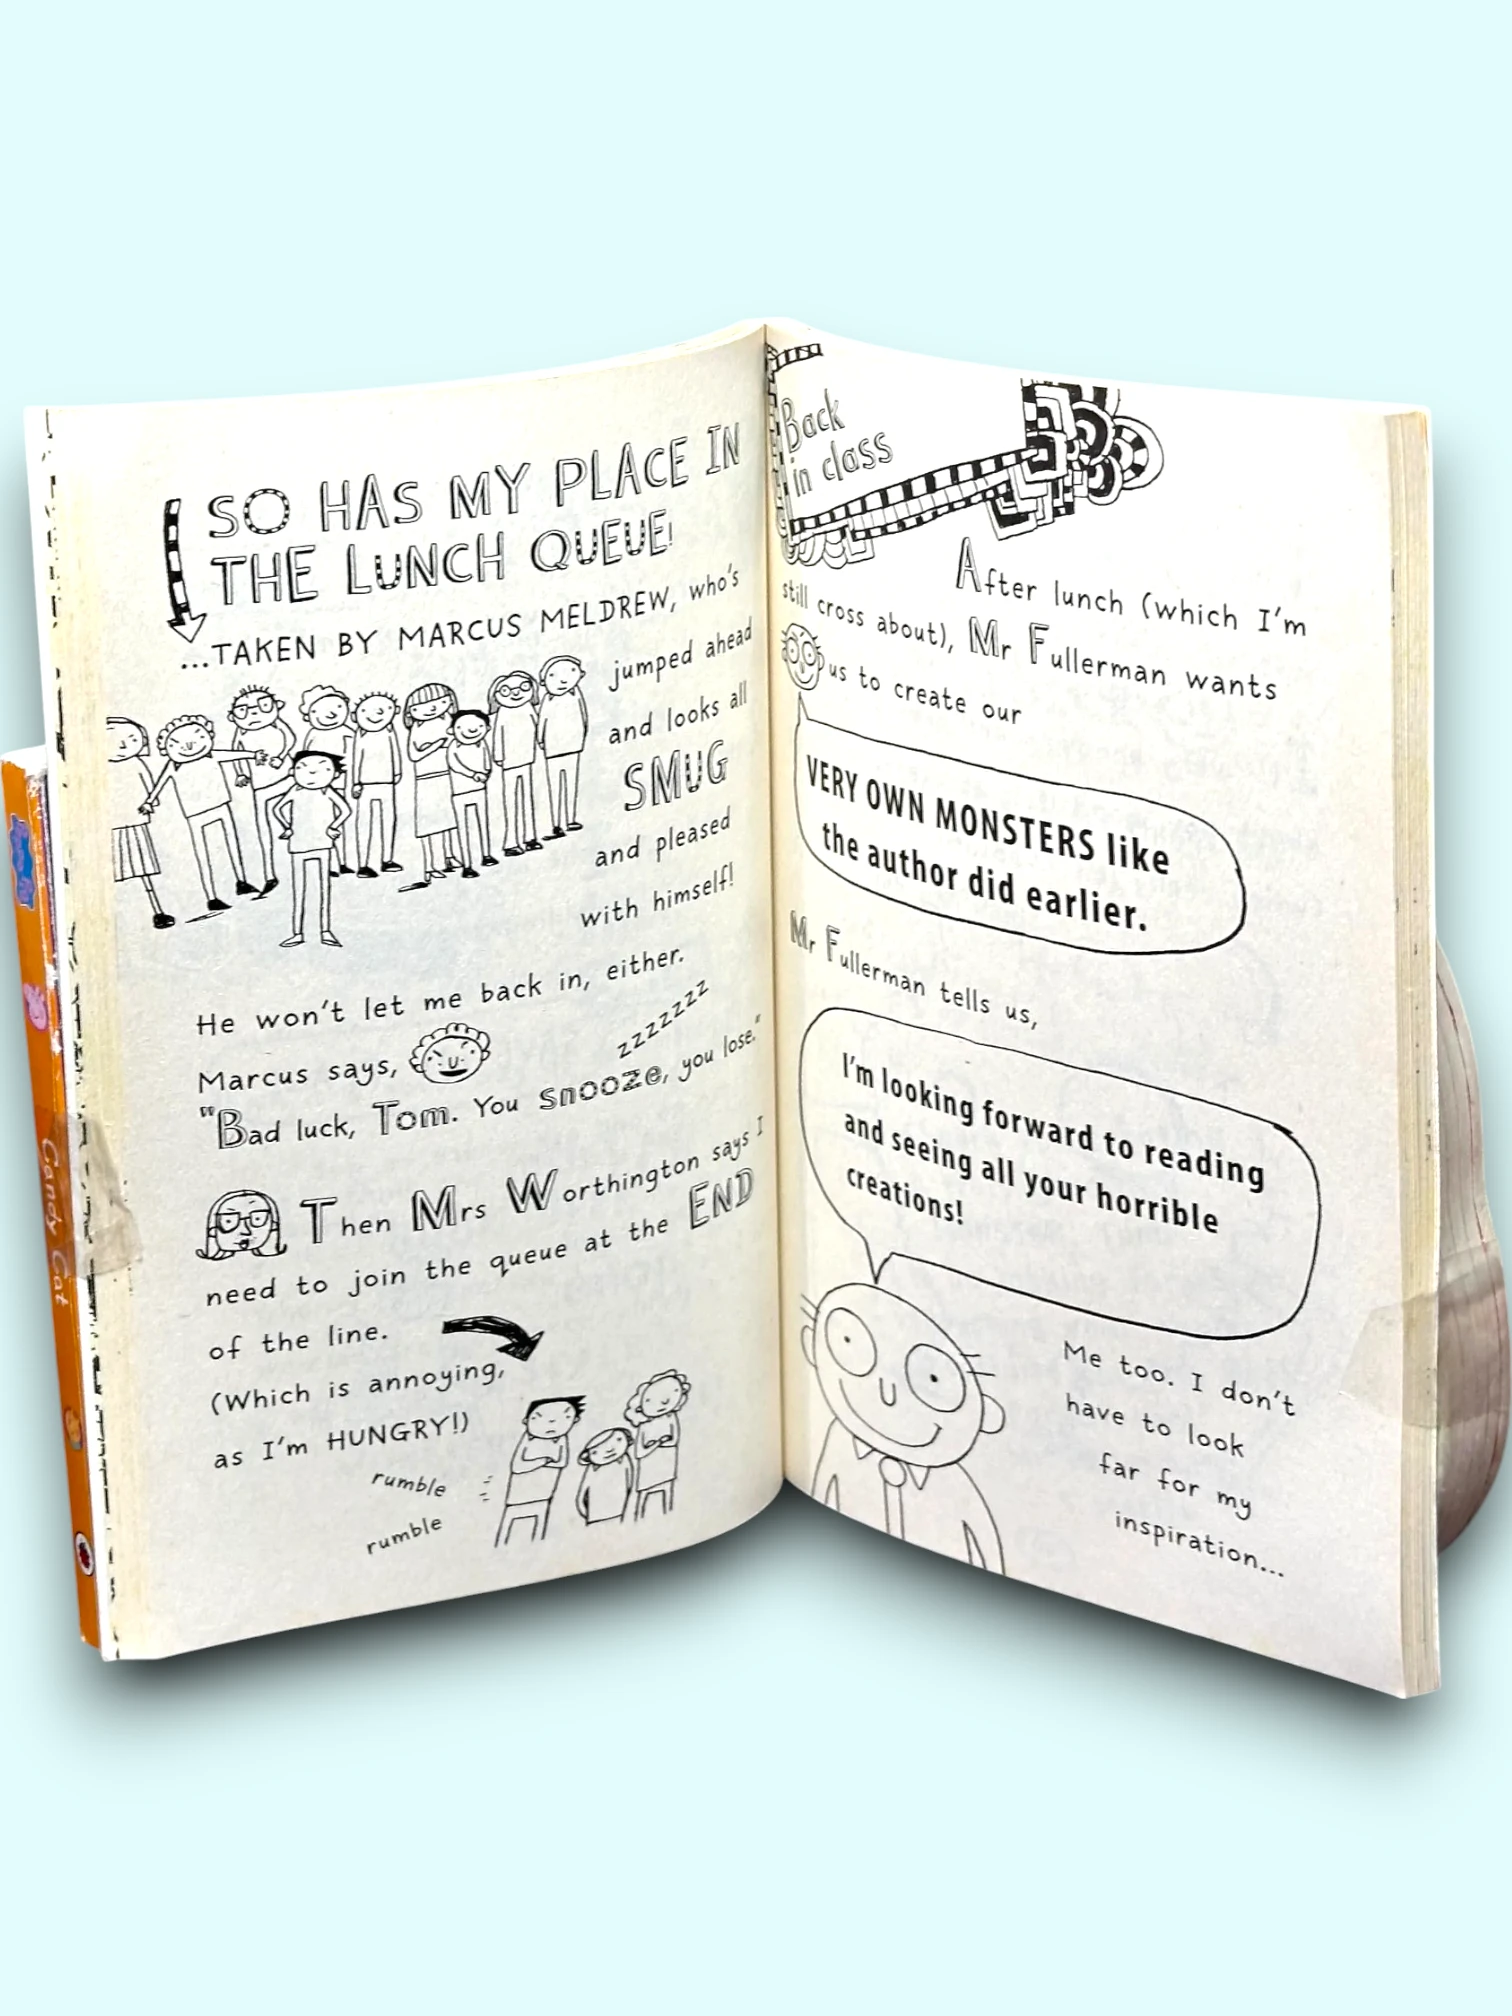 SO HAS MY PLACE IN
THE LUNCH QUEUE!
...TAKEN BY MARCUS MELDREW, who's
jumped ahead
and looks all
SMUG
and pleased
with himself!
He won't let me back in, either.
Marcus says,
zzzzzzz
"Bad luck, Tom. You snooze, you lose."
Then Mrs Worthington says I
need to join the queue at the END
of the line.
(Which is annoying,
as I'm HUNGRY!)
rumble
rumble
Back
in class
After lunch (which I'm
still cross about), Mr Fullerman wants
us to create our
VERY OWN MONSTERS like
the author did earlier.
Mr Fullerman tells us,
I'm looking forward to reading
and seeing all your horrible
creations!
Me too. I don't
have to look
far for my
inspiration...
Candy Cat